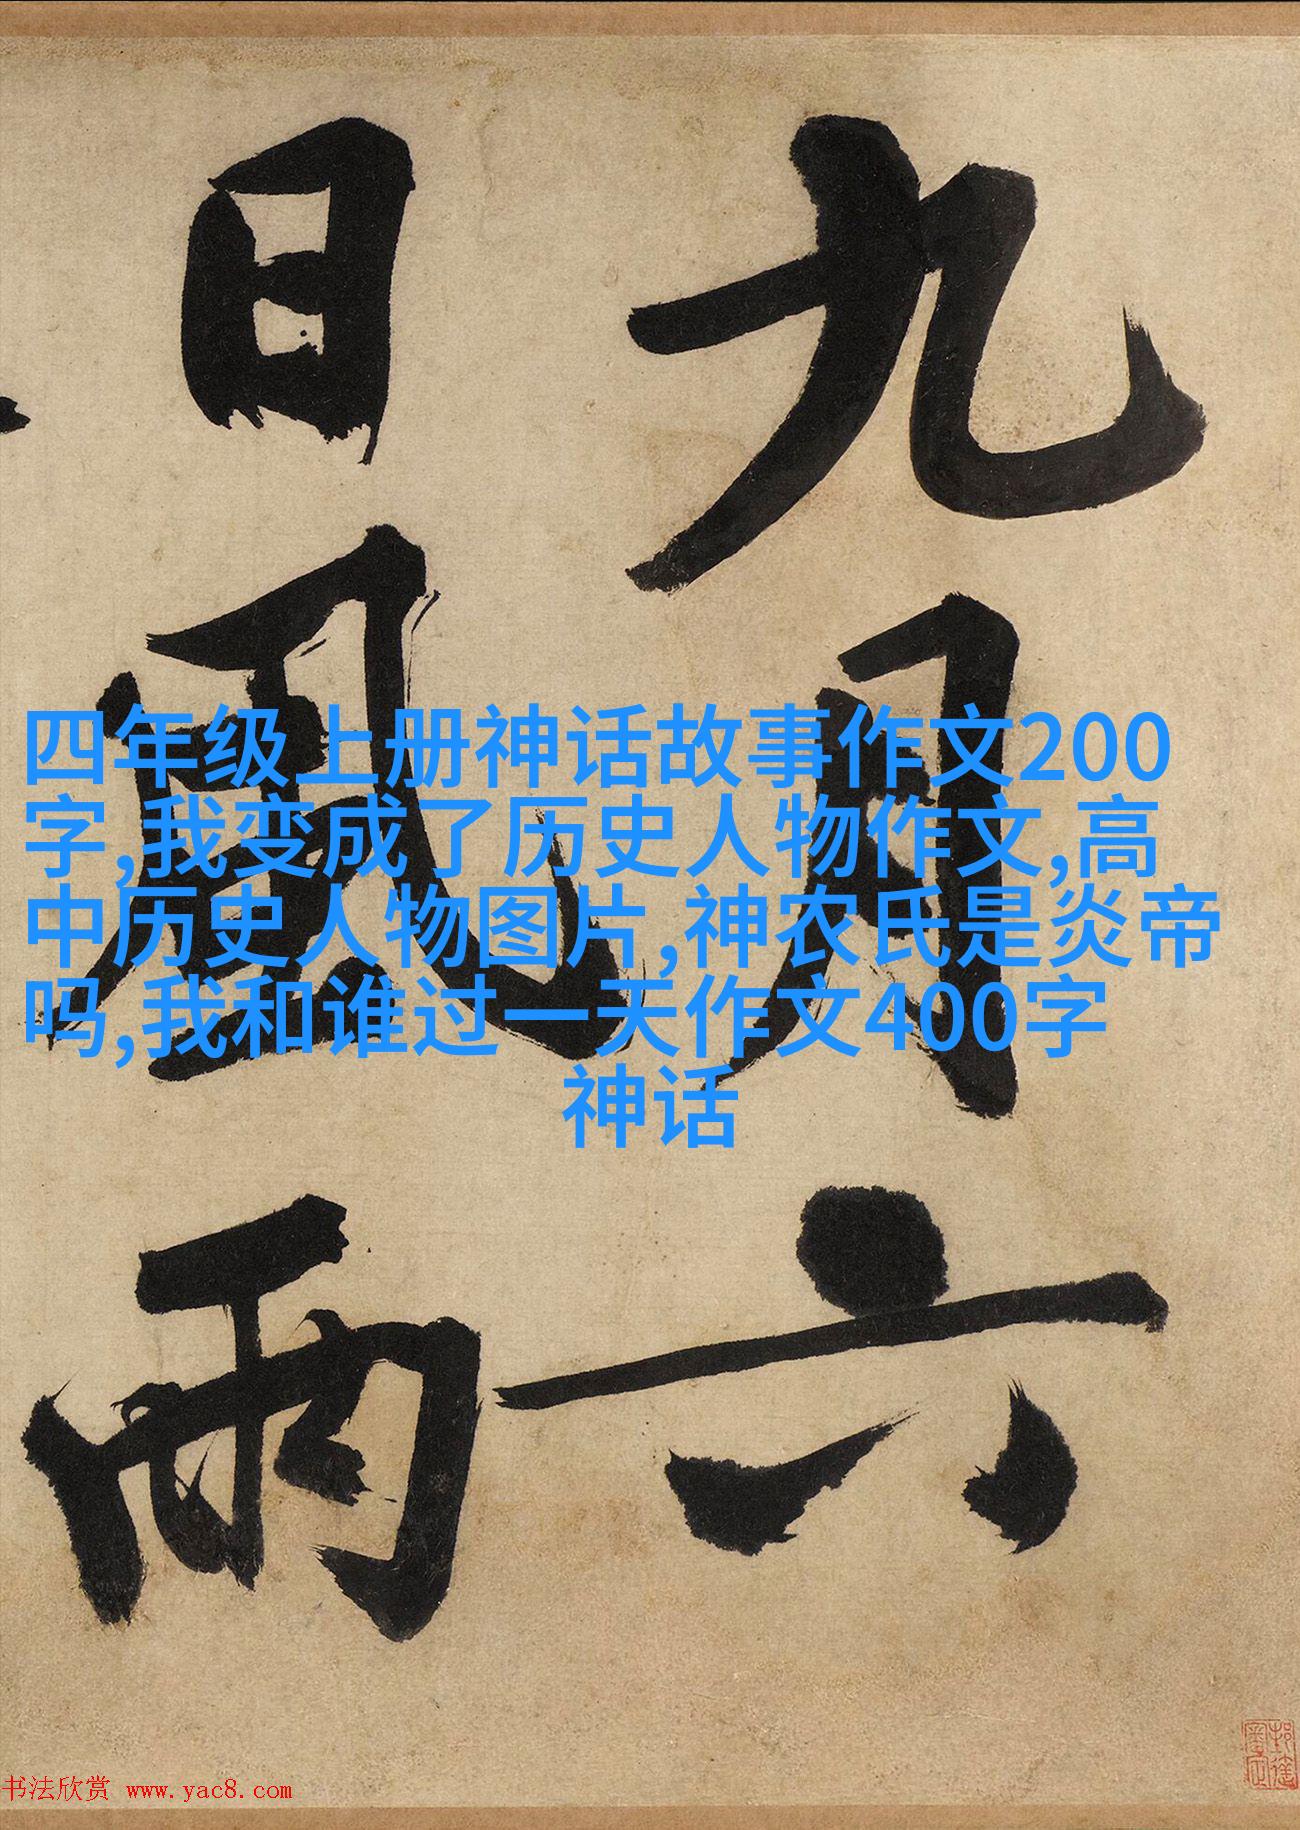 九月六
日風雨
四年级上册神话故事作文200
字,我变成了历史人物作文,高
中历史人物图片,神农氏是炎帝
吗,我和谁过一天作文400字
神话
书法欣赏 www.yac8.com